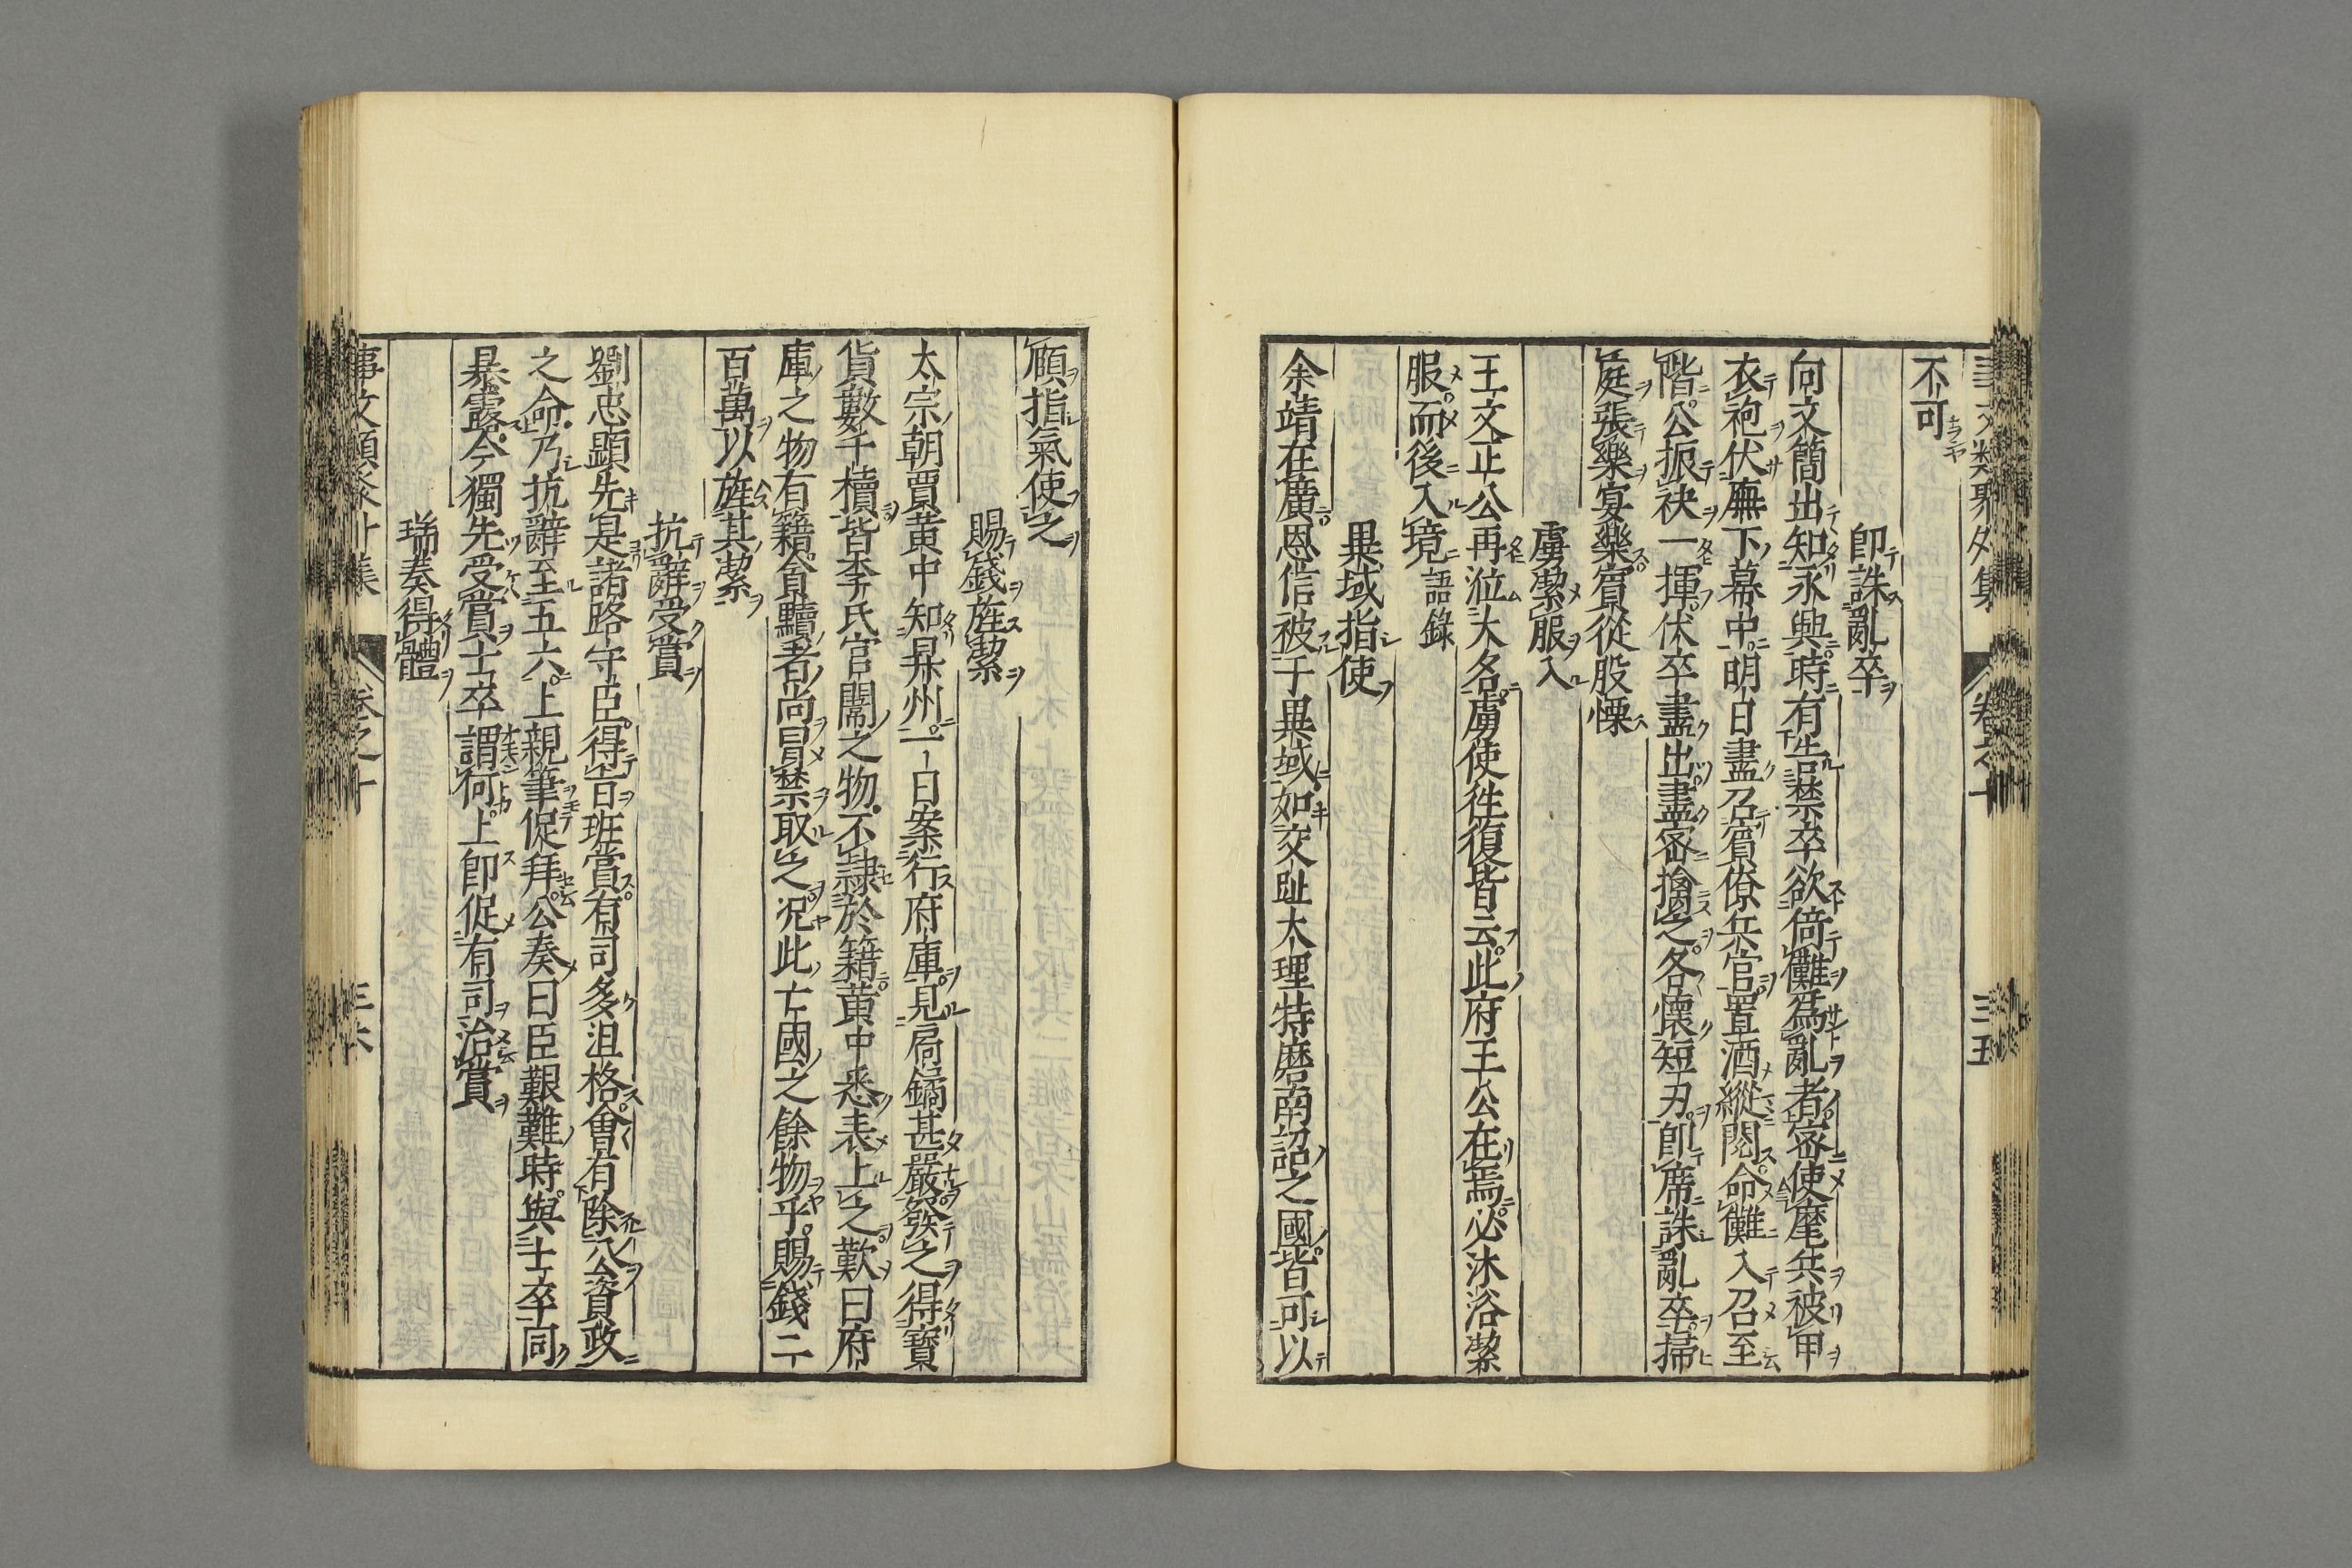 事文類聚外集 卷之十 三五
不可
即誅亂卒
向文簡出知永興時有告禁卒欲倚儺爲亂者密使麾兵被甲
衣袍伏廡下幕中明日盡召賓僚兵官置酒縱閱命儺入召至
階公振袂一揮伏卒盡出盡密擒之各懷短刃即席誅亂卒掃
庭張樂宴樂賓從股慄
虜潔服入
王文正公再涖大名虜使徃復皆云此府王公在焉必沐浴潔
服而後入境語錄
異域指使
余靖在廣恩信被于異域如交趾大理特磨南詔之國皆可以
頤指氣使之
賜錢旌潔
太宗朝賈黃中知昇州一日案行府庫見扃鐍甚嚴發之得寶
貨數千櫝皆李氏官闈之物不隷於籍黃中悉表上之歎曰府
庫之物有籍貪黷者尚冒禁取之况此亡國之餘物乎賜錢二
百萬以旌其潔
抗辭受賞
劉忠顯先是諸路守臣得旨班賞有司多沮格會有除公資政
之命乃抗辭至五六上親筆促拜公奏曰臣艱難時與士卒同
暴露今獨先受賞士卒謂何上即促有司治賞
瑞奏得體
事文類聚外集 卷之十 三六